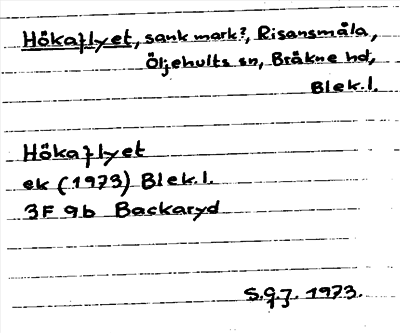 Hökaflyet, sank mark?, Risansmåla,
Öljehults sn, Bräkne hd,
Blek.l.
Hökaflyet
ek (1973) Blek.l.
3F 9b Backaryd
S.G.J. 1973.